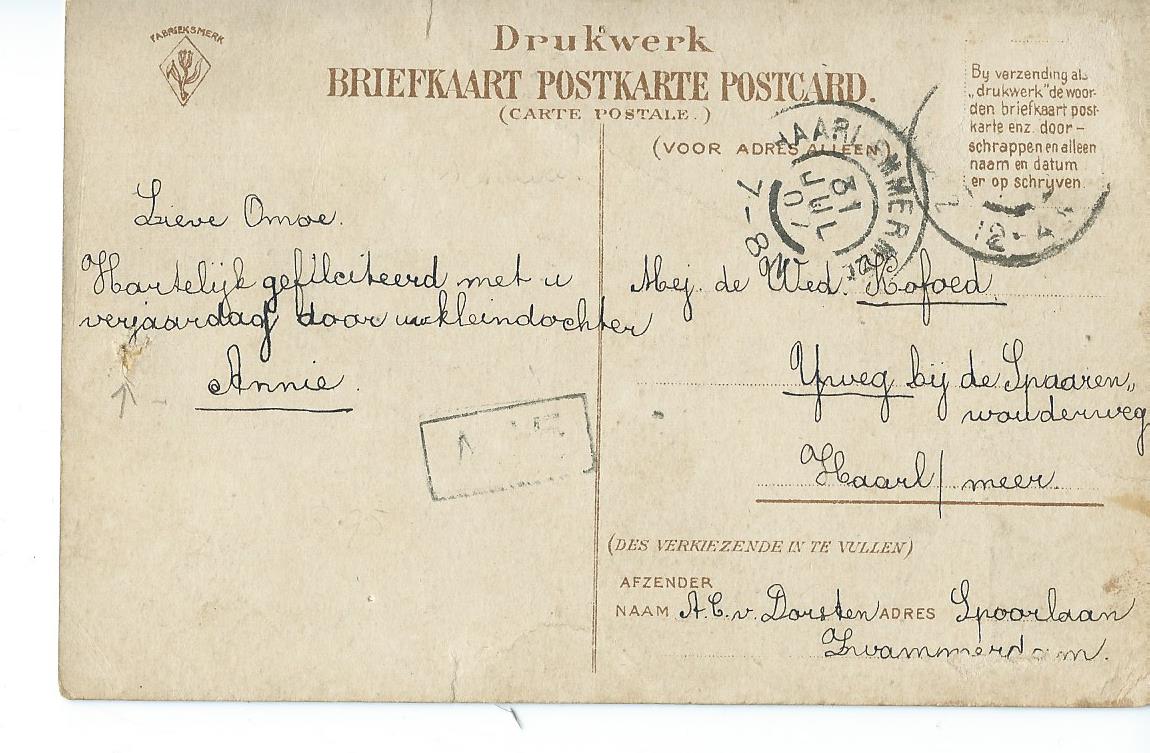 FABRIEKSMERK
Drukwerk
BRIEFKAART POSTKARTE POSTCARD.
(CARTE POSTALE.)
(VOOR ADRES ALLEEN)
By verzending als
„drukwerk" de woor-
den briefkaart post-
karte enz. door-
schrappen en alleen
naam en datum
er op schryven.
HAARLEMMERMEER
31
JUL
07
7-8N
12-
Lieve Omoe.
Hartelijk gefiliciteerd met u
verjaardag door uw kleindochter
Annie.
Mej. de Wed. Kofoed
Yweg bij de Spaaren„
wouderweg
Haarl/meer.
(DES VERKIEZENDE IN TE VULLEN)
AFZENDER
NAAM A.C.v. Dorsten ADRES Spoorlaan
Zwammerdam.